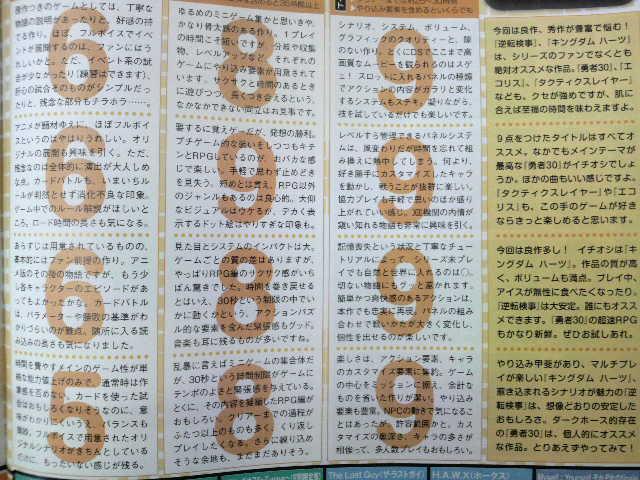 原作つきのゲームとしては、丁寧な
物語の説明があったりと、好感の持
てる作り。ほぼフルボイスでイベ
ントが展開するのは、ファンにはう
れしいかと。ただ、イベント系の試
合が少なかったり(練習はできます)、
肝心の試合そのものがシンプルだっ
たりと、残念な部分もチラホラ……。
アニメが題材ゆえに、ほぼフルボイ
スというのはやはりうれしい。オリ
ジナルの展開も興味を引く。ただ、
残念なのは全体的に演出が大人しめ
な点。カードバトルも、いまいちル
ールが判然とせず消化不良な印象。
ゲーム中でのルール解説がほしいと
ころ。ロード時間の長さも気になる。
あらすじは用意されているものの、
基本的にはファン向けの作り。アニ
メ版のその後の物語ですが、もう少
し各キャラクターのエピソードがあ
ってもよかったかな。カードバトル
は、パラメーターや勝敗の基準がわ
かりづらいのが難点。随所に入る読
み込みの長さも気になりました。
時間を費やすメインのゲーム性が単
純な能力値上げのみで、通常時は作
業感を否めない。カードを使った試
合はおもしろくなりそうなのに、意
味がわかりにくいうえ、バランスも
微妙。フルボイスで用意されたオリ
ジナルシナリオがきちんとしている
のに、もったいない感じが残る。
5
6
6
5
ゆるめのミニゲーム集かと思いきや、
かなり骨太感のある作り。1プレイ
の時間こそ短いですが、分岐や収集
物、レベルアップなど、それぞれの
ゲームにやり込み要素が用意されて
います。サクサクと時間のあるとき
に遊びつつ、長くつき合えるという、
なかなかできない両立はお見事です。
要するに覚えゲーだが、発想の勝利。
プチゲーム的な装いをしつつもキチ
ンとRPGしているのが、おバカな感
じで楽しい。手軽で思わず止めどき
を見失う。短めとは言え、RPG以外
のジャンルもあるのは良心的。大仰
なビジュアルはウケるが、デカく表
示するドット絵はやりすぎな印象も。
見た目とシステムのインパクトは大。
ゲームごとの質の差はありますが、
やっぱりRPG編のサクサク感がいち
ばん驚きでした。時間を巻き戻せる
とはいえ、30秒という制限の中でい
かに動くかという、アクションパズ
ル的な要素を含んだ緊張感もグッド。
音楽も耳に残るものが多いですね。
乱暴に言えばミニゲームの集合体だ
が、30秒という時間制限がゲームに
テンポのよさと緊張感を与えている。
とくに、その内容を凝縮したRPG編が
おもしろい。クリアーまでの過程が
ふたつ以上のものも多く、くり返し
プレイしたくなる。さらに練り込め
そうな余地も、まだまだありそう。
シナリオ、システム、ボリューム、
グラフィックのクオリティーと、隙
のない作り。とくにDSでここまで高
画質なムービーを観られるのはスゲ
ェ! スロットに入れるパネルの種類
でアクションの内容がガラリと変化
するシステムもステキ。凝りながら、
技を試しているだけでも楽しいです。
レベルすら管理できるパネルシステム
は、減度ありだが時間を忘れて組
み換えに熱中してしまう。何より、
好き勝手にカスタマイズしたキャラ
を動かし、戦うことが抜群に楽しい。
協力プレイも手軽で思いのほか盛り
上がれていい感じ。XIII機関の内情が
窺い知れる物語も非常に興味を引く。
記憶喪失という状況と丁寧なチュート
リアルによって、シリーズ未プレ
イでも自然と世界に入れるのは〇。
切ない物語にもグっと惹かれます。
簡単かつ爽快感のあるアクションは、
本作でも忠実に再現。パネルの組み
合わせで戦いかたが大きく変化し、
個性を出せるのが楽しいです。
楽しさは、アクション要素、キャラ
のカスタマイズ要素に集約。ゲーム
の中心をミッションに据え、余計な
ものを省いた作りが潔い。やり込み
要素も豊富。NPCの動きで気になる
ことはあったが、許容範囲かと。カ
スタマイズの奥深さ、キャラの多さが
相俟って、多人数プレイもおもしろい。
9
9
9
9
今回は良作、秀作が豊富で悩む!
『逆転検事』、『キングダム ハーツ』
は、シリーズのファンでなくとも
絶対オススメな作品。『勇者30』、『エ
コリス』、『タクティクスレイヤー』
なども、クセが強めですが、肌に
合えば至福の時間を味わえますよ。
9点をつけたタイトルはすべてオス
スメ。なかでもメインテーマが
最高な『勇者30』がイチオシでしょ
うか。ほかの曲もいい感じですよ。
『タクティクスレイヤー』や『エコ
リス』も、この手のゲームが好き
ならきっと楽しめると思います。
今回は良作多し! イチオシは『キ
ングダム ハーツ』。作品の質が高
く、ボリュームも満点。プレイ中、
アイスが無性に食べたくなったり。
『逆転検事』は大安定。誰にもオス
スメできます。『勇者30』の超速RPG
もかなり新鮮。ぜひお試しあれ。
やり込み甲斐があり、マルチプレ
イが楽しい『キングダム ハーツ』、
惹き込まれるシナリオが魅力の『逆
転検事』は、想像どおりの安定した
おもしろさ。ダークホース的存在
の『勇者30』は、個人的にオススメ
な作品。とりあえずやってみて!
The Lost Guy(ザ・ラストガイ)
H.A.W.X(ホークス)